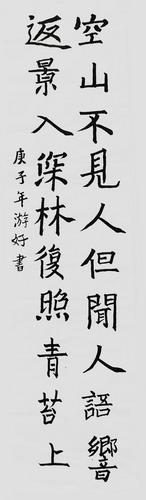 空山不見人但聞人語響
返景入深林復照青苔上
庚子年游好書